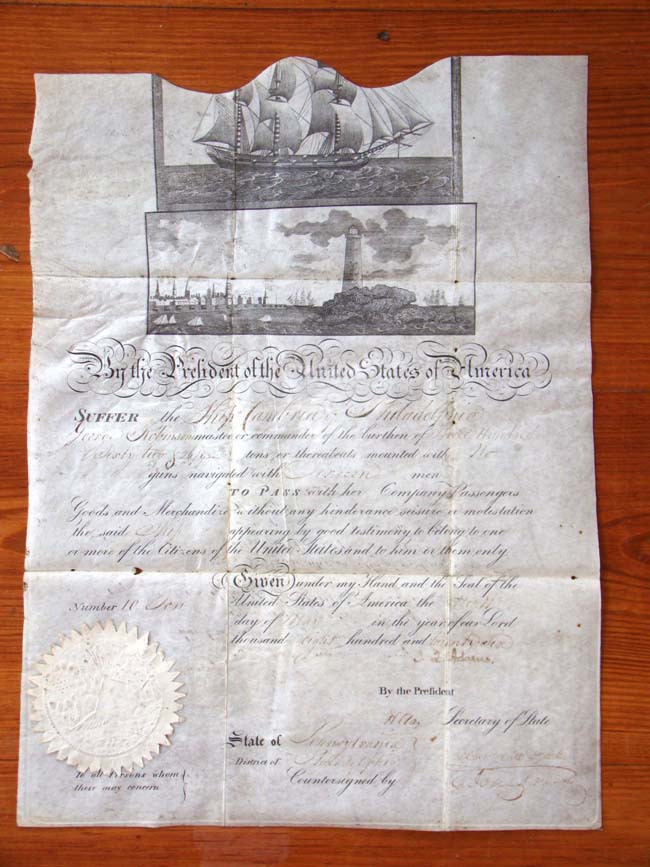 By the President of the United States of America
SUFFER the Ship Cambria of Philadelphia
George Robinson master or commander of the burthen of Three Hundred
& Sixty two tons or thereabouts mounted with No
guns navigated with men
TO PASS with her Company Passengers
Goods and Merchandize without any hinderance seisure or molestation
the said Ship appearing by good testimony to belong to one
or more of the Citizens of the United States and to him or them only
Given under my Hand and the Seal of the
Number 10 Ten
United States of America the
day of May in the year of our Lord
thousand eight hundred and twenty six
J. Q. Adams.
By the Prefident
H Clay Secretary of State
State of Pennsylvania
District of Philadelphia
Countersigned by
To all Persons whom
these may concern